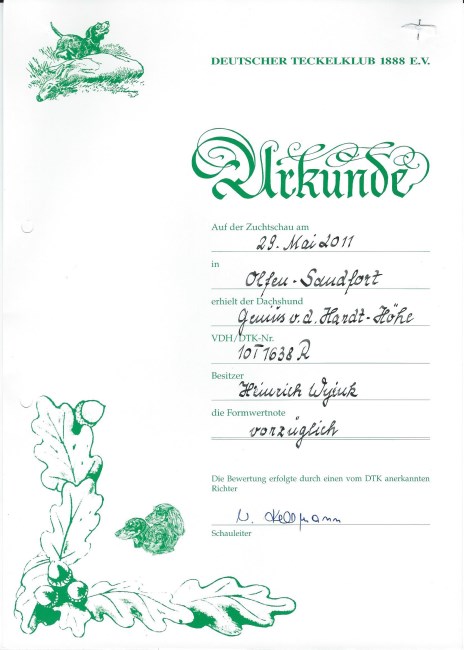 DEUTSCHER TECKELKLUB 1888 E.V.
Urkunde
Auf der Zuchtschau am
29. Mai 2011
in
Olfen-Sandfort
erhielt der Dachshund
Genius v. d. Hardt-Höhe
VDH/DTK-Nr.
10T1638R
Besitzer
Heinrich
die Formwertnote
vorzüglich
Die Bewertung erfolgte durch einen vom DTK anerkannten
Richter
Schauleiter